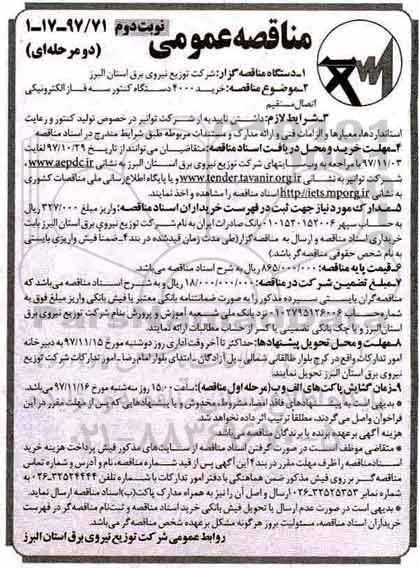 مناقصه عمومی نوبت دوم ۹۷/۷۱-۱۷-۱
(دو مرحله‌ای)
۱-دستگاه مناقصه گزار: شرکت توزیع نیروی برق استان البرز
۲-موضوع مناقصه: خرید ۴۰۰۰ دستگاه کنتور سه فاز الکترونیکی
اتصال مستقیم
۳-شرایط لازم: داشتن تاییدیه از شرکت توانیر در خصوص تولید کنتور و رعایت
استانداردها، معیارها و الزامات فنی و ارائه مدارک و مستندات مربوطه طبق شرایط مندرج در اسناد مناقصه
۴-مهلت خرید و محل دریافت اسناد مناقصه: متقاضیان می توانند از تاریخ ۹۷/۱۰/۲۹ لغایت
۹۷/۱۱/۰۳ با مراجعه به وب سایتهای شرکت توزیع نیروی برق استان البرز به نشانی www.aepdc.ir،
شرکت توانیر به نشانی www.tender.tavanir.org.ir و یا پایگاه اطلاع رسانی ملی مناقصات کشوری
به نشانی http://iets.mporg.ir اسناد مناقصه را مشاهده و اخذ نمایند.
۵-مدارک مورد نیاز جهت ثبت در فهرست خریداران اسناد مناقصه: واریز مبلغ ۳۲۷/۰۰۰ ریال
به حساب سپهر ۰۱۰۱۵۳۰۱۵۲۰۰۶ بانک صادرات ایران به نام شرکت توزیع نیروی برق استان البرز بابت
خریداری اسناد مناقصه و ارسال به مناقصه گزار (طی مدت زمان قید شده در بند ۴-ضمنا فیش واریزی بایستی
به نام شخص حقوقی مناقصه گر باشد.)
۶-قیمت پایه مناقصه: ۸۶۵/۰۰۰/۰۰۰ ریال به شرح اسناد مناقصه می باشد.
۷-مبلغ تضمین شرکت در مناقصه: ۱۸/۰۰۰/۰۰۰/۰۰۰ ریال و به شرح اسناد مناقصه می باشد که
مناقصه گران بایستی سپرده مذکور را به صورت ضمانتنامه بانکی معتبر یا فیش بانکی واریز مبلغ فوق به
شماره حساب ۰۱۰۲۷۹۵۱۲۶۰۰۶ نزد بانک ملی شعبه آموزش و پرورش بنام شرکت توزیع نیروی برق
استان البرز و یا چک بانکی تضمینی یا کسر از حساب مطالبات ارائه نمایند.
۸-مهلت و محل تحویل پیشنهادها: حداکثر تا آخر وقت اداری روز دوشنبه مورخ ۹۷/۱۱/۱۵ به دبیرخانه
امور تدارکات واقع در کرج بلوار طالقانی شمالی ـ پل آزادگان ـ ابتدای بلوار امام رضا ـ امور تدارکات شرکت توزیع
نیروی برق استان البرز تحویل نمایند.
۹-زمان گشایش پاکت های الف و ب (مرحله اول مناقصه): ساعت ۱۵:۰۰ روز سه شنبه مورخ ۹۷/۱۱/۱۶ می باشد.
* بدیهی است به پیشنهادهای فاقد امضا، مشروط، مخدوش و یا پیشنهادهایی که پس از مهلت مقرر در این
فراخوان واصل می گردند، مطلقا ترتیب اثر داده نخواهد شد.
هزینه آگهی بر عهده برنده یا برندگان مناقصه می باشد.
* متقاضی موظف است در صورت گرفتن اسناد مناقصه از سایت های مذکور فیش پرداخت هزینه خرید
اسناد مناقصه را ظرف مهلت مقرر در بند ۴ این آگهی پس از قید شماره مناقصه، نام و آدرس و شماره تماس
مناقصه گر بر روی فیش مذکور ضمن هماهنگی با دفتر امور تدارکات با شماره تلفن ۳۲۵۲۴۴۴۴-۰۲۶
به شماره نمابر ۳۲۵۲۵۳۵۳-۰۲۶ ارسال و اصل آن را نیز به همراه مدارک پاکت (ب) اسناد مناقصه ارسال نماید.
* بدیهی است در صورت عدم ارسال یا تحویل فیش بانکی خرید اسناد مناقصه و ثبت نام مناقصه گر در فهرست
خریداران اسناد مناقصه، مسئولیت بروز هرگونه مشکل بر عهده شخص مناقصه گر می باشد.
روابط عمومی شرکت توزیع نیروی برق استان البرز